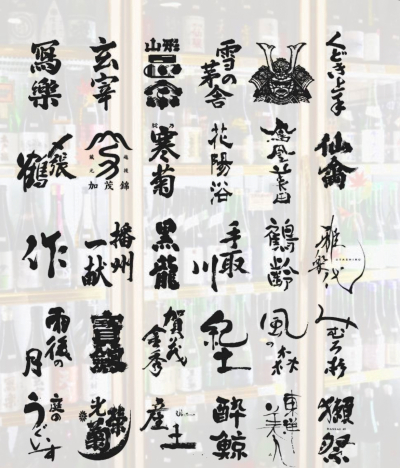 寫樂
玄宰
山形
雪の茅舎
くどき上手
〆張鶴
蔵元
加茂錦
寒菊
花陽浴
鳳凰美田
仙禽
作
播州一献
黒龍
手取川
鶴齢
雅楽代
雨後の月
寳剣
賀茂金秀
紀土
風の森
みむろ杉
庭のうぐいす
光栄菊
産土
酔鯨
東洋美人
獺祭